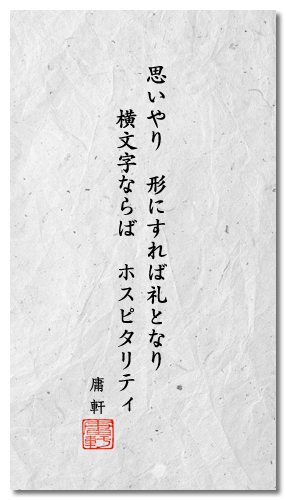 思いやり　形にすれば礼となり
横文字ならば　ホスピタリティ
庸軒